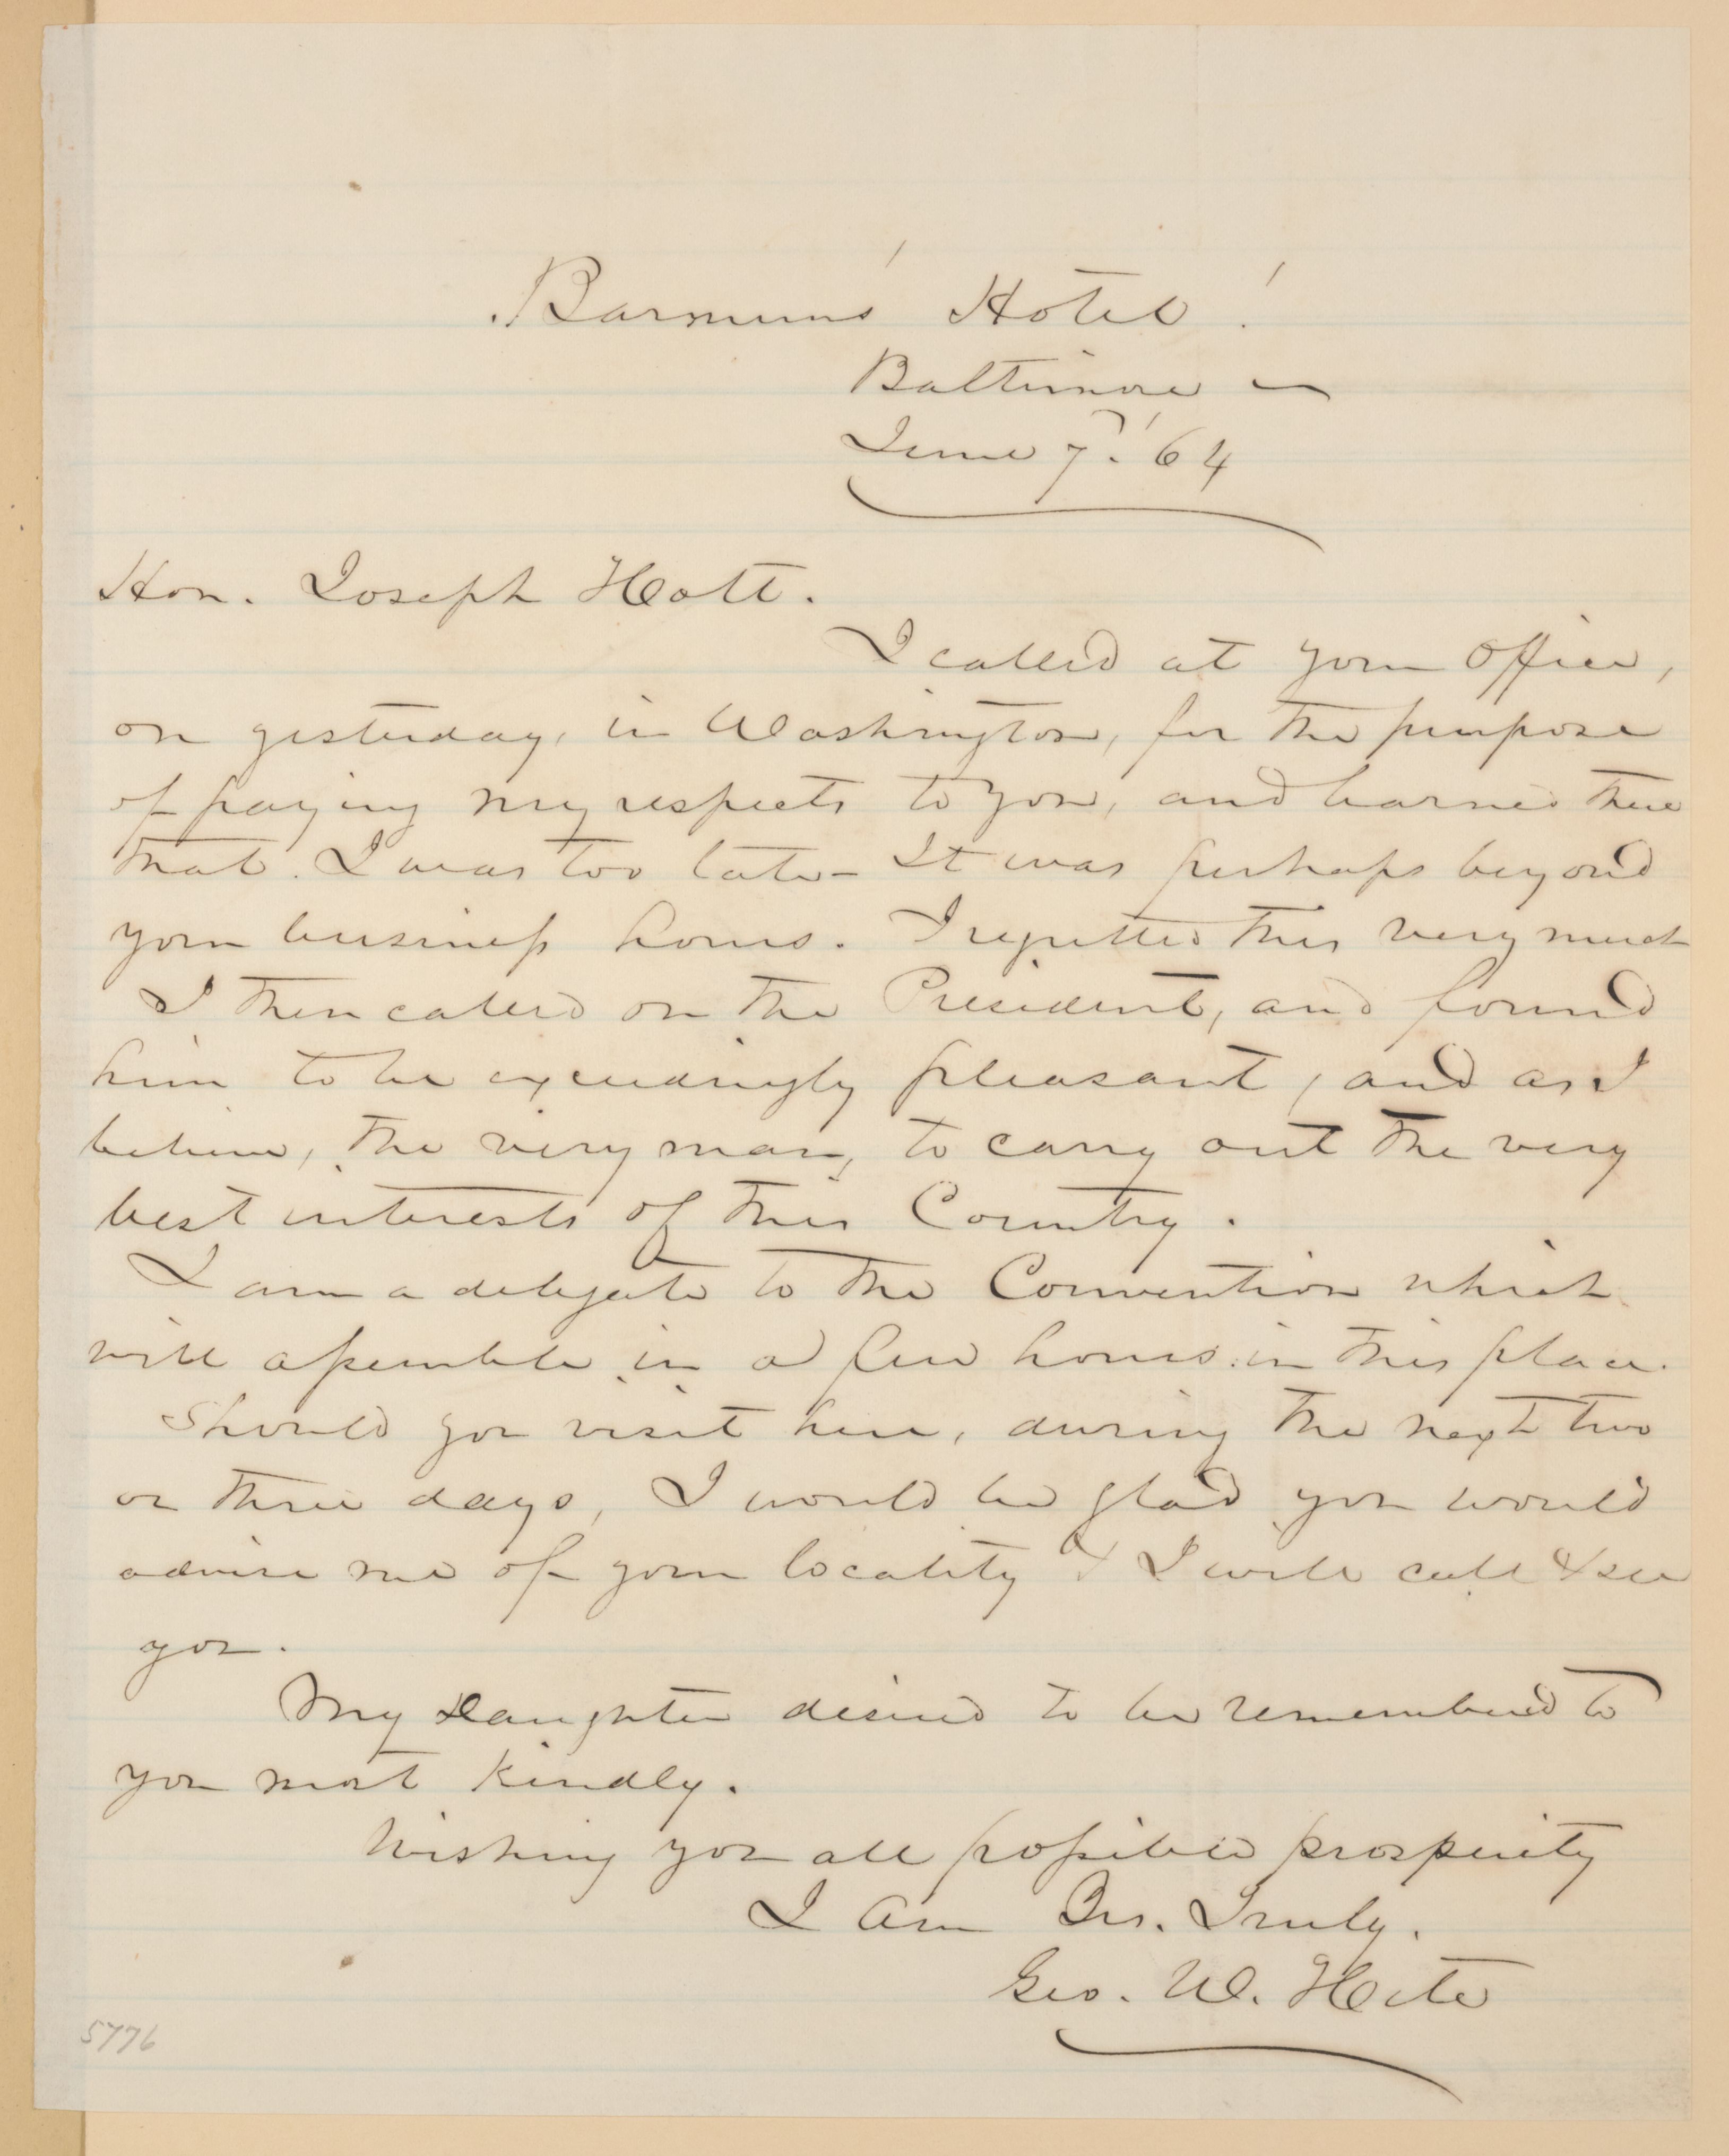 Barnums' Hotel!
Baltimore
June 7. '64
Hon. Joseph Holt.
I called at your Office,
on yesterday, in Washington, for the purpose
of paying my respects to you, and learned there
that I was too late - It was perhaps beyond
your business hours. I regretted this very much
I then called on the President, and found
him to be exceedingly pleasant, and as I
believe, the very man, to carry out the very
best interests of this Country.
I am a delegate to the Convention which
will assemble in a few hours in this place.
Should you visit here, during the next two
or three days, I would be glad you would
advise me of your locality & I will call & see
you.
My Daughter desired to be remembered to
you most kindly.
Wishing you all possible prosperity
I Am Yrs. Truly.
Geo. W. Hite
5776